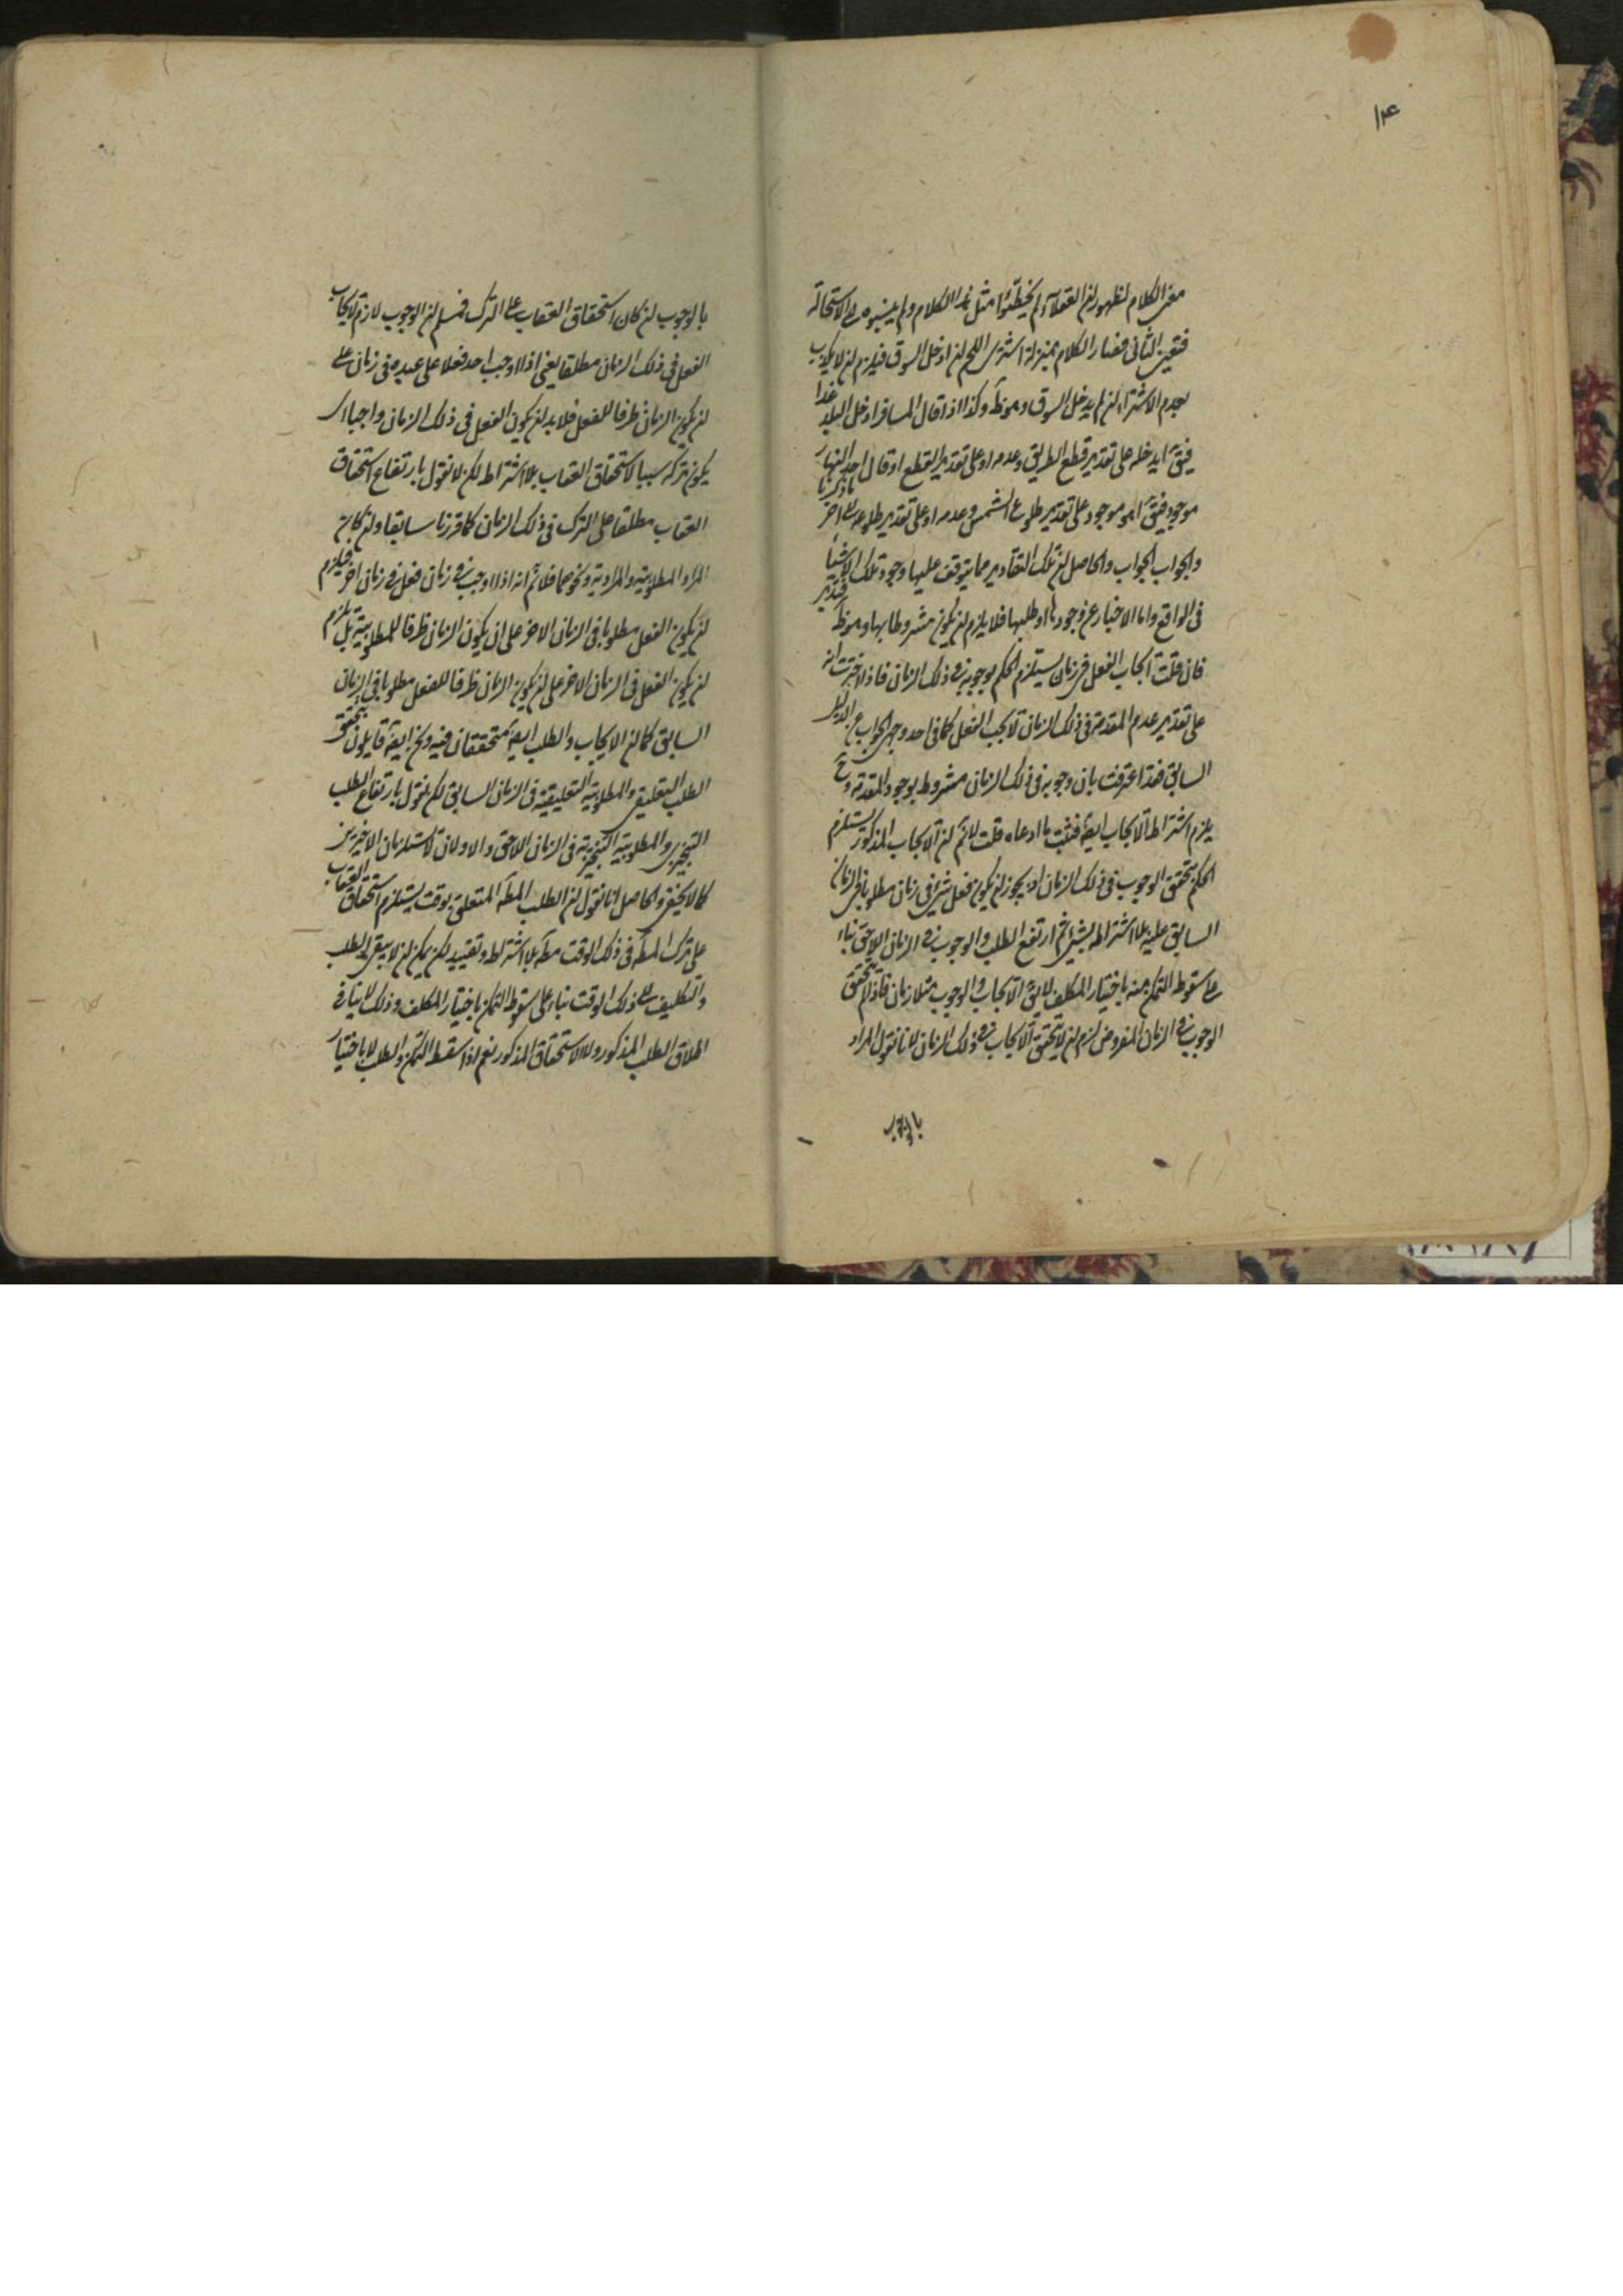 ۱۴
معنى الكلام لظهور ان العقلاء لم يخطّئوا مثل هذا الكلام ولم ينسبوه الى الاستحالة
فتعين الثانى فصار الكلام بمنزلة اشترى اللحم ان ادخل السوق فيلزم ان لا يكذب
بعدم الاشتراء ان لم يدخل السوق وهو ظ وكذا اذا قال المسافر ادخل البلد غدا
فيق ايدخله على تقدير قطع الطريق وعدمه او على تقدير القطع او قال احد النهار
موجود فيق اهو موجود على تقدير طلوع الشمس وعدمه او على تقدير طلوعه الى اخر ما ذكرنا
والجواب الجواب والحاصل ان تلك التقادير مما يتوقف عليها وجود تلك الاشياء
فى الواقع واما الاخبار عن وجودها او طلبها فلا يلزم ان يكون مشروطا بها وهو ظ فتدبر
فان قلت ايجاب الفعل فى زمان يستلزم الحكم بوجوبه فى ذلك الزمان فاذا اخترت انه
على تقدير عدم المقدمة فى ذلك الزمان لا يجب الفعل كما فى احد وجهى الجواب عن الدليل
السابق فقد اعترفت بان وجوبه فى ذلك الزمان مشروط بوجود المقدمة وح
يلزم اشتراط الايجاب ايض فثبت ما ادعاه قلت لا نم ان الايجاب المذكور يستلزم
الحكم بتحقق الوجوب فى ذلك الزمان اذ يجوز ان يكون فعل شىء فى زمان مطلوبا فى الزمان
السابق عليه بلا اشتراطه بشىء ثم ارتفع الطلب والوجوب فى الزمان اللاحق بناء
على سقوط التمكن منه باختيار المكلف لا يق الايجاب والوجوب متلازمان فاذا لم يتحقق
الوجوب فى الزمان المفروض لزم ان لا يتحقق الايجاب فى ذلك الزمان لانا نقول المراد
بالوجوب
بالوجوب ان كان استحقاق العقاب على الترك فمسلم ان الوجوب لازم لايجاب
الفعل فى ذلك الزمان مطلقا يعنى اذا اوجب احد فعلا على عبده فى زمان على
ان يكون الزمان ظرفا للفعل فلا بد ان يكون الفعل فى ذلك الزمان واجبا اى
يكون تركه سببا لاستحقاق العقاب بلا اشتراط لكن لا نقول بارتفاع استحقاق
العقاب مطلقا على الترك فى ذلك الزمان كما قررنا سابقا وان كان
المراد المطلوبية والمرادية ونحوهما فلا نم انه اذا اوجب فى زمان فعل فى زمان اخر فيلزم
ان يكون الفعل مطلوبا فى الزمان الاخر على ان يكون الزمان ظرفا للمطلوبية بل يلزم
ان يكون الفعل فى الزمان الاخر على ان يكون الزمان ظرفا للفعل مطلوبا فى الزمان
السابق كما ان الايجاب والطلب ايض متحققان فيه ونحن ايض قايلون بتحقق
الطلب التعليقى والمطلوبية التعليقية فى الزمان السابق لكن نقول بارتفاع الطلب
التنجيزى والمطلوبية التنجيزية فى الزمان اللاحق والاولان لا يستلزمان الاخيرين
كما لا يخفى والحاصل انا نقول ان الطلب المط المتعلق بوقت يستلزم استحقاق العقاب
على ترك المط فى ذلك الوقت مط بلا اشتراط وتقييد لكن يمكن ان لا يبقى الطلب
والتكليف الى ذلك الوقت بناء على سقوط التمكن باختيار المكلف وذلك لا ينافى
اطلاق الطلب المذكور ولا الاستحقاق المذكور نعم اذا سقط التمكن والطلب لا باختيار